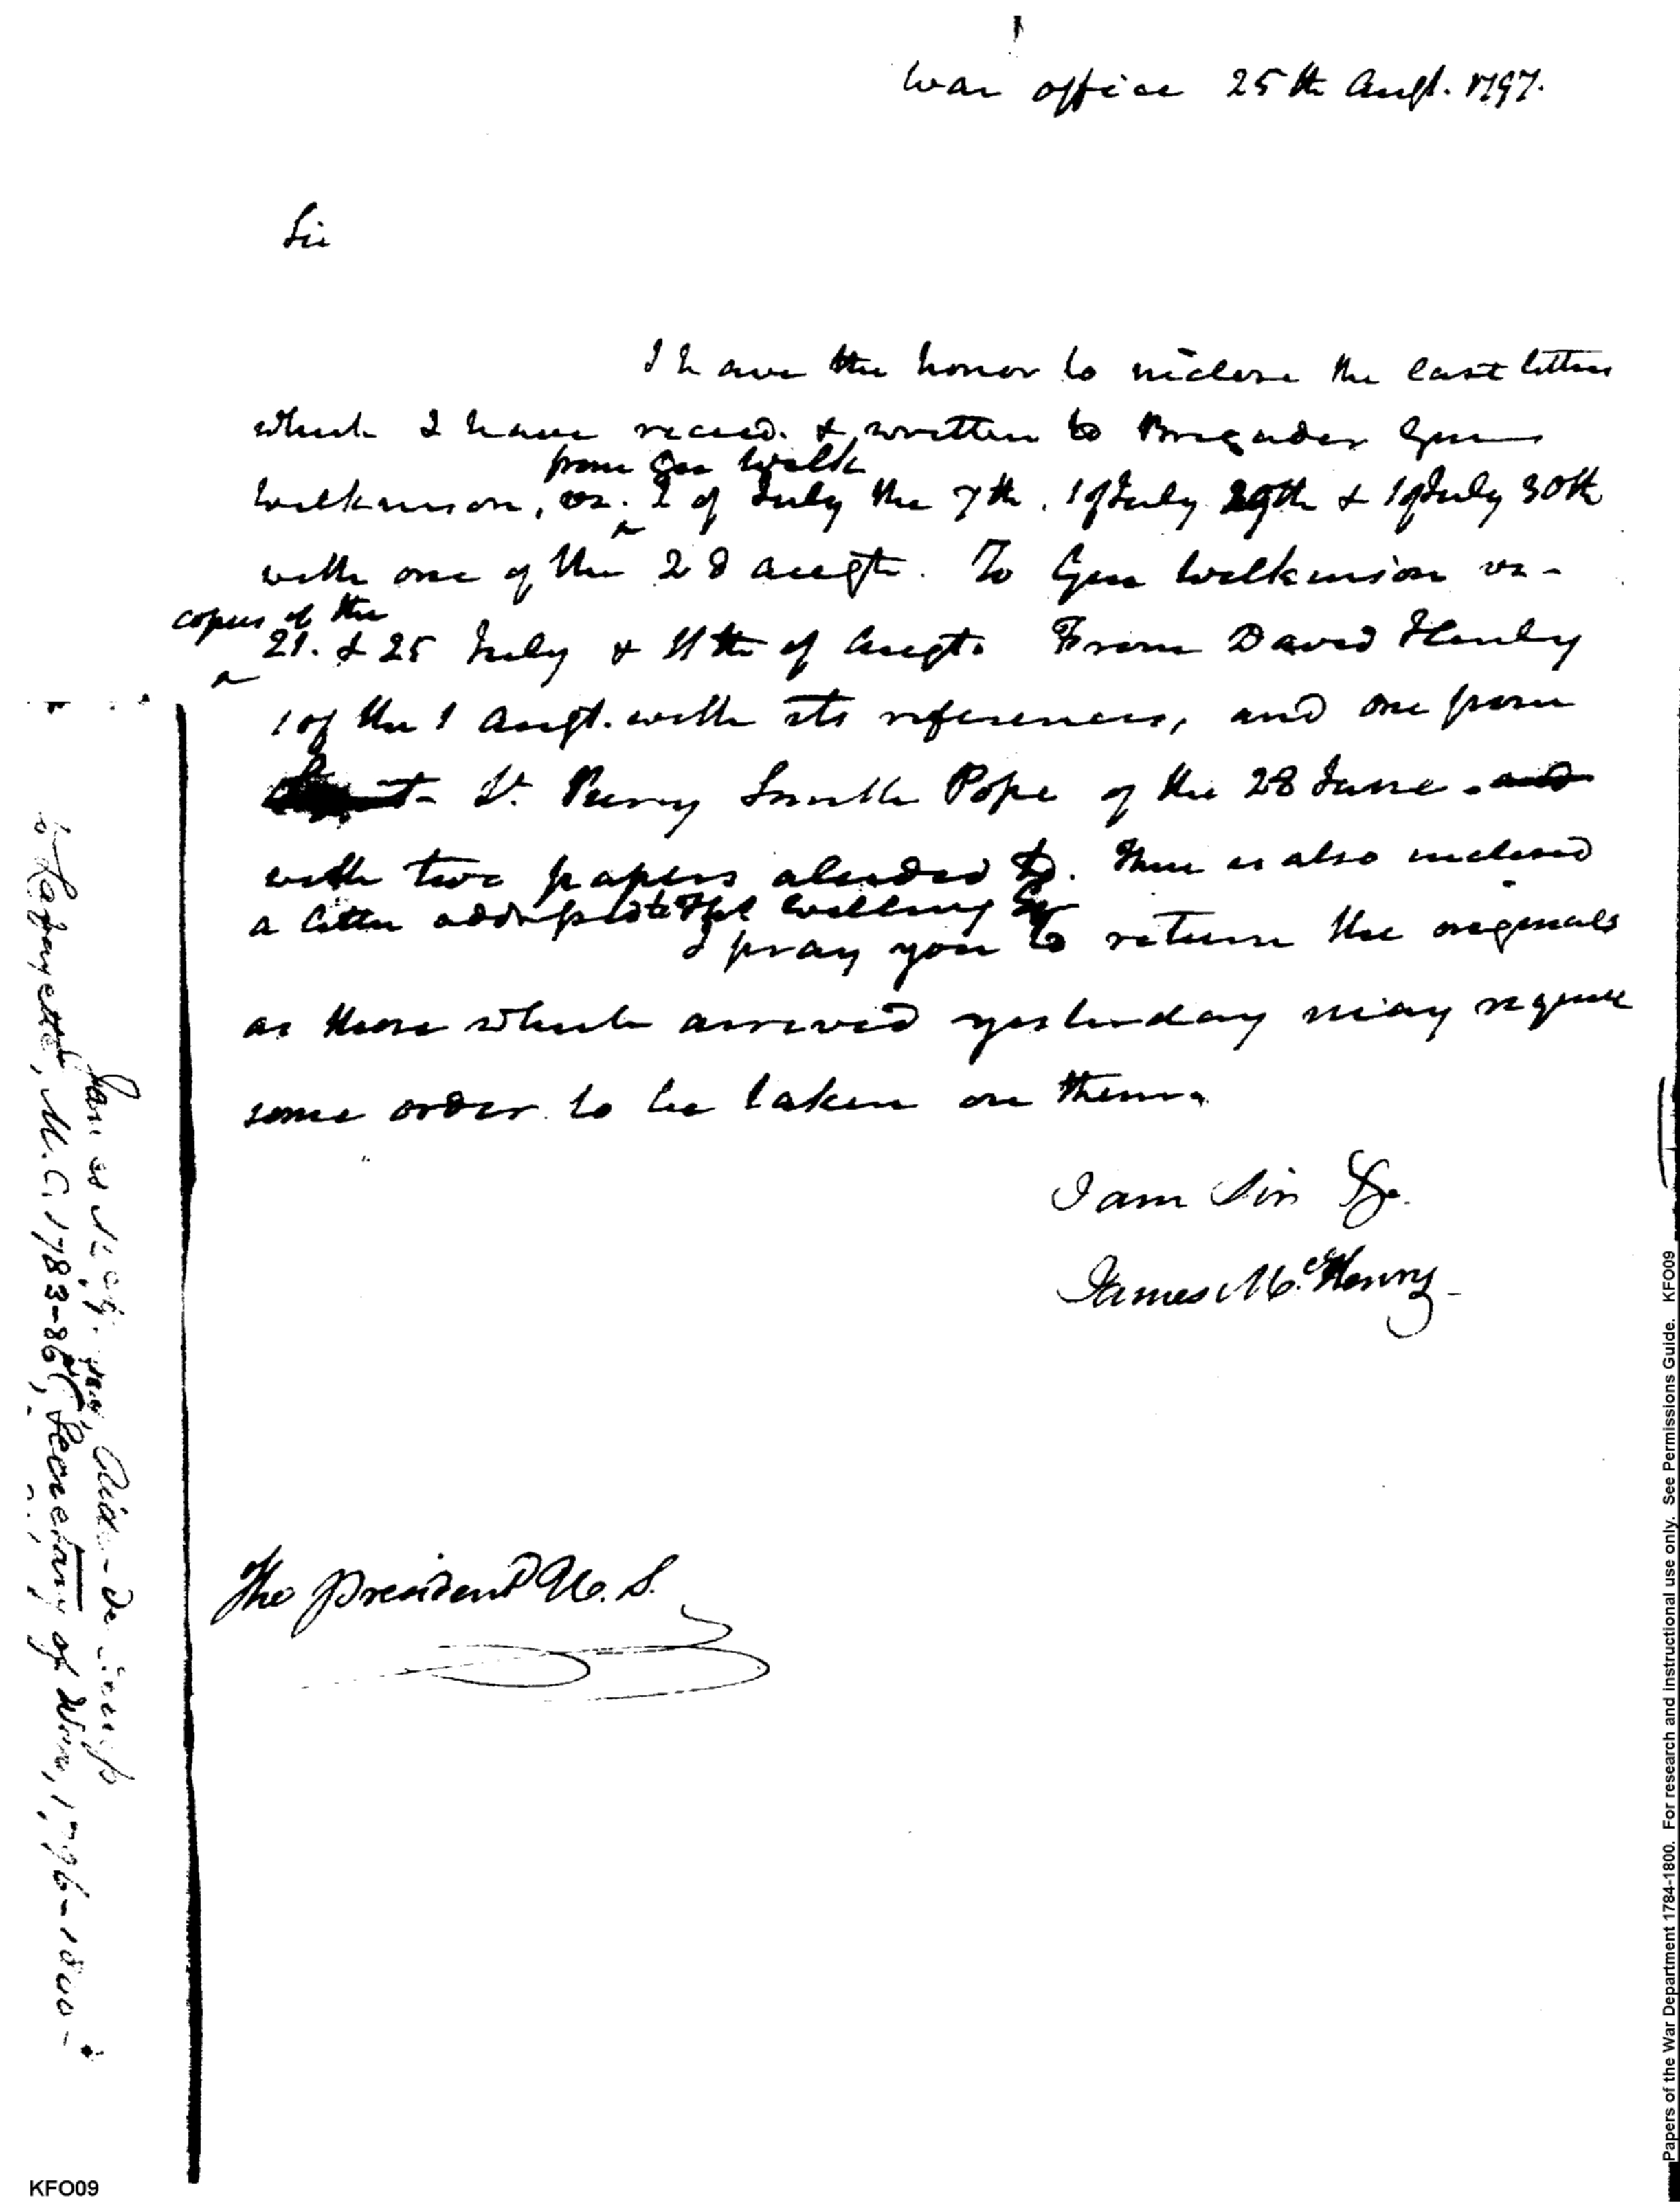 War office 25th Augt. 1797.
Sir
I have the honor to inclose the last letters
which I have recied. & written to Brigadier Gen
from Gen Wilk
Wilkinson, vz. 2 of July the 7th. 1 of July 29th & 1 of July 30th
with one of the 2d Augt. To Gen Wilkinson vz-
copies of the
21. & 25 July & 11th of Augt. From David Henley
1 of the 1 Augt. with its references, and one from
Lt. Percy Smith Pope of the 28 June. and
with two papers aluded to. There is also inclosed
a letter addressed to Willing
I pray you to return the originals
as those which arrived yesterday may require
some order to be taken on them.
I am Sir &c.
James McHenry
The president U. S.
James McHenry, Aide-de-Camp
to Lafayette, M.C. 1783-86, Secretary of War, 1796-1800-
KFO09
Papers of the War Department 1784-1800. For research and instructional use only. See Permissions Guide. KFO09